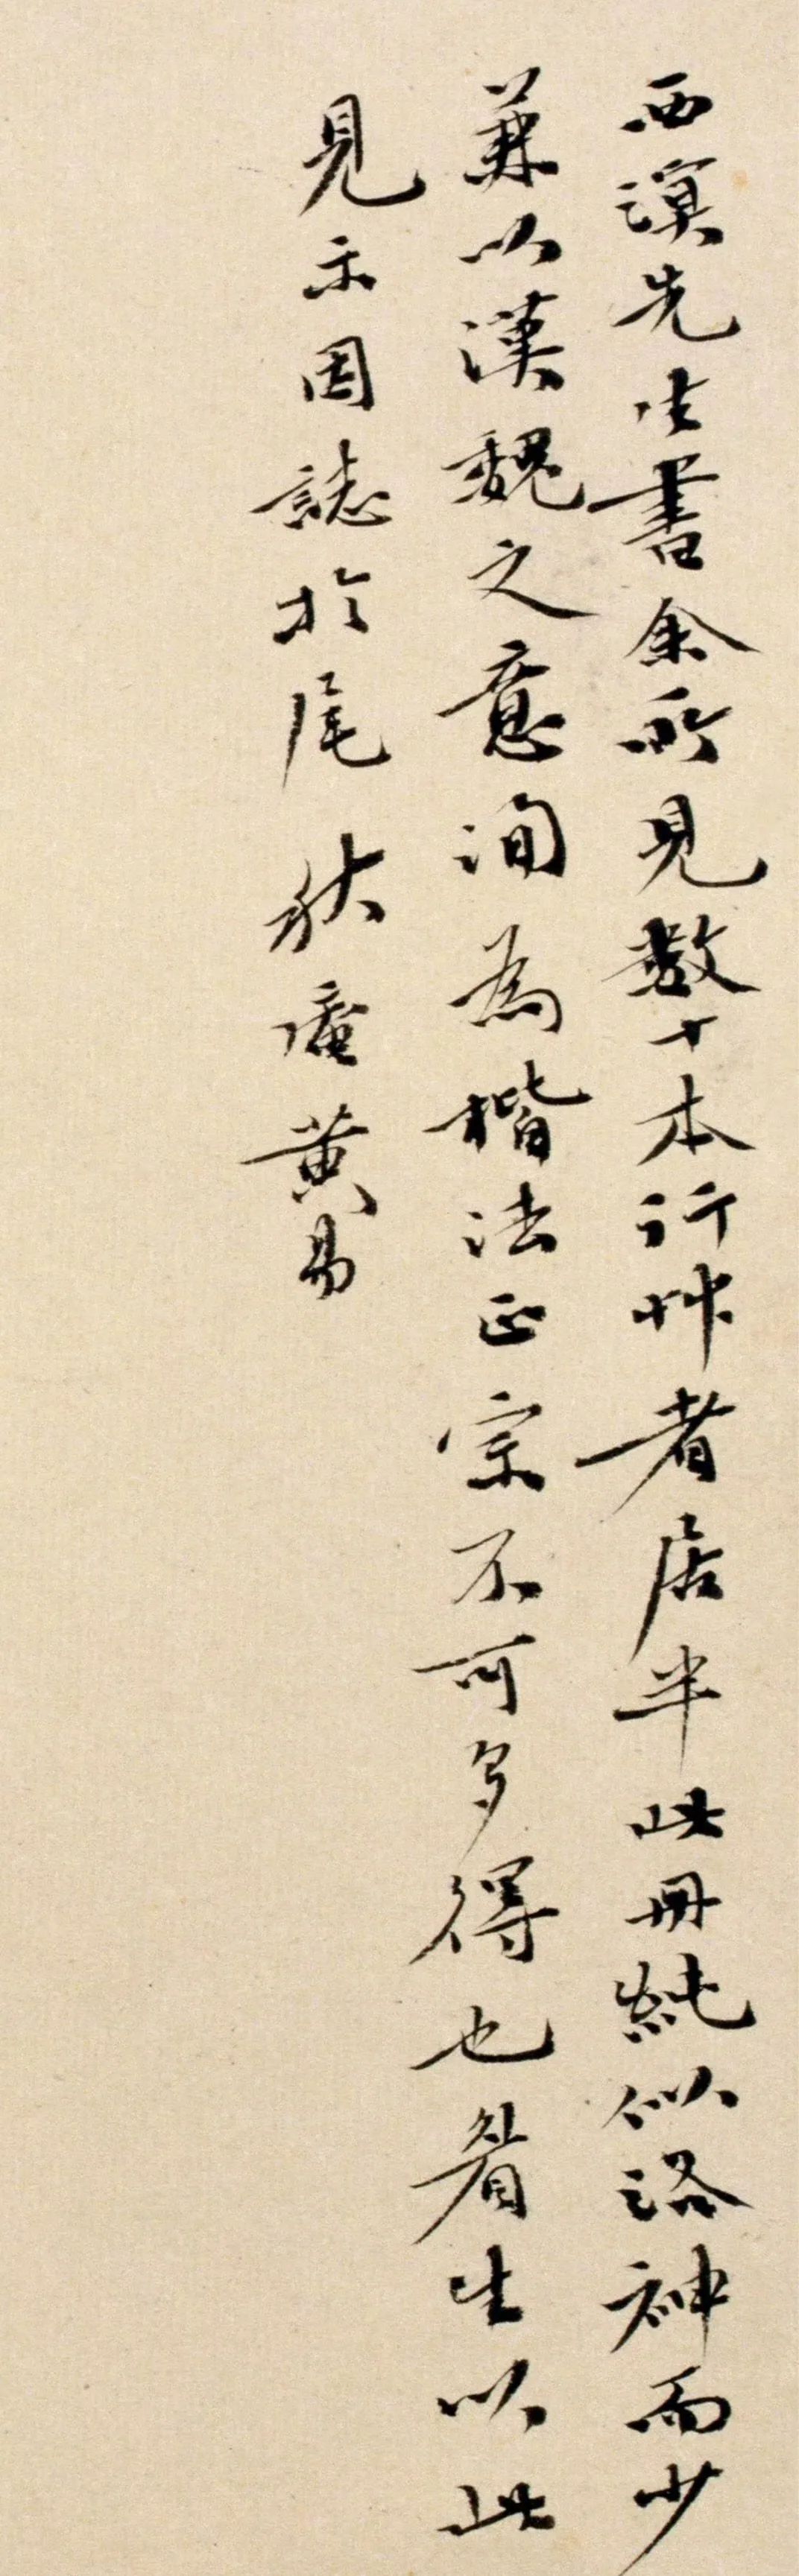 西溟先生書余所見数十本行艸者居半此冊純似洛神而少
兼以漢魏之意洵為楷法正宗不可多得也生以此
見示因誌於尾 秋庵黄易